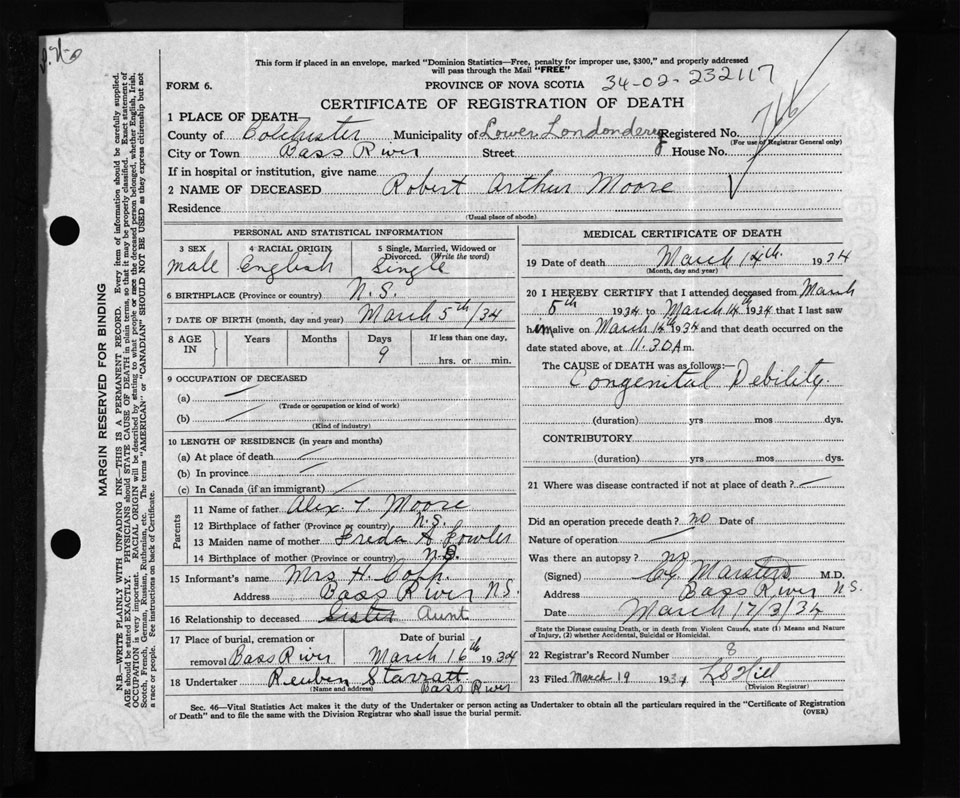 This form if placed in an envelope, marked "Dominion Statistics—Free, penalty for improper use, $300," and properly addressed
will pass through the Mail "FREE"
FORM 6.
PROVINCE OF NOVA SCOTIA 34-02-232117
CERTIFICATE OF REGISTRATION OF DEATH
1 PLACE OF DEATH
County of Colchester Municipality of Lower Londonderry Registered No. 766
(For use of Registrar General only)
City or Town Bass River Street House No.
If in hospital or institution, give name
2 NAME OF DECEASED Robert Arthur Moore
Residence
(Usual place of abode)
PERSONAL AND STATISTICAL INFORMATION
3 SEX 4 RACIAL ORIGIN 5 Single, Married, Widowed or
Divorced. (Write the word)
male English Single
6 BIRTHPLACE (Province or country) N.S.
7 DATE OF BIRTH (month, day and year) March 5th/34
8 AGE IN Years Months Days If less than one day,
9 hrs. or min.
9 OCCUPATION OF DECEASED
(a)
(Trade or occupation or kind of work)
(b)
(Kind of industry)
10 LENGTH OF RESIDENCE (in years and months)
(a) At place of death
(b) In province
(c) In Canada (if an immigrant)
Parents
11 Name of father Alex. T. Moore
12 Birthplace of father (Province or country) N.S.
13 Maiden name of mother Freda A Fowler
14 Birthplace of mother (Province or country) N.S.
15 Informant's name Mrs. H.
Address Bass River N.S.
16 Relationship to deceased Sister Aunt
17 Place of burial, cremation or Date of burial
removal Bass River March 16th 1934
18 Undertaker Reuben Starratt
(Name and address) Bass River
MEDICAL CERTIFICATE OF DEATH
19 Date of death March 14th. 1934
(Month, day and year)
20 I HEREBY CERTIFY that I attended deceased from March
5th 1934 to March 14 1934 that I last saw
him alive on March 14th 1934 and that death occurred on the
date stated above, at 11.30 A m.
The CAUSE of DEATH was as follows:—
Congenital Debility.
(duration) yrs mos dys.
CONTRIBUTORY
(duration) yrs mos dys.
21 Where was disease contracted if not at place of death?
Did an operation precede death? no Date of
Nature of operation
Was there an autopsy? no
(Signed) Marsters M.D.
Address Bass River N.S.
Date March 17/3/34
State the Disease causing Death, or in death from Violent Causes, state (1) Means and Nature
of Injury, (2) whether Accidental, Suicidal or Homicidal.
22 Registrar's Record Number 8
23 Filed March 19 1934 L S Hill
(Division Registrar)
Sec. 46—Vital Statistics Act makes it the duty of the Undertaker or person acting as Undertaker to obtain all the particulars required in the "Certificate of Registration
of Death" and to file the same with the Division Registrar who shall issue the burial permit.
(OVER)
MARGIN RESERVED FOR BINDING
N.B.—WRITE PLAINLY WITH UNFADING INK—THIS IS A PERMANENT RECORD. Every item of information should be carefully supplied.
AGE should be stated EXACTLY. PHYSICIANS should STATE CAUSE OF DEATH in plain terms, so that it may be properly classified. Exact statement of
OCCUPATION is very important. RACIAL ORIGIN will be described by stating to what people or race the deceased person belonged, whether English, Irish,
Scotch, French, German, Russian, Ruthenian, etc. The terms "AMERICAN" or "CANADIAN" SHOULD NOT BE USED as they express citizenship but not
a race or people. See instructions on back of Certificate.